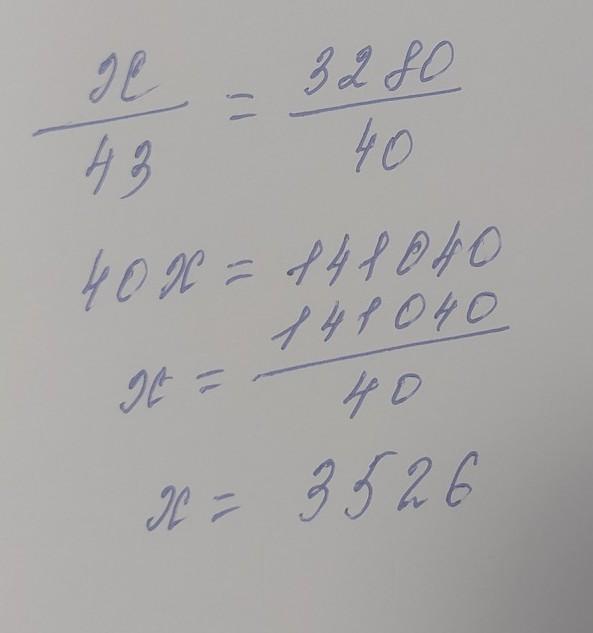 x/43 = 3280/40
40x = 141040
x = 141040/40
x = 3526